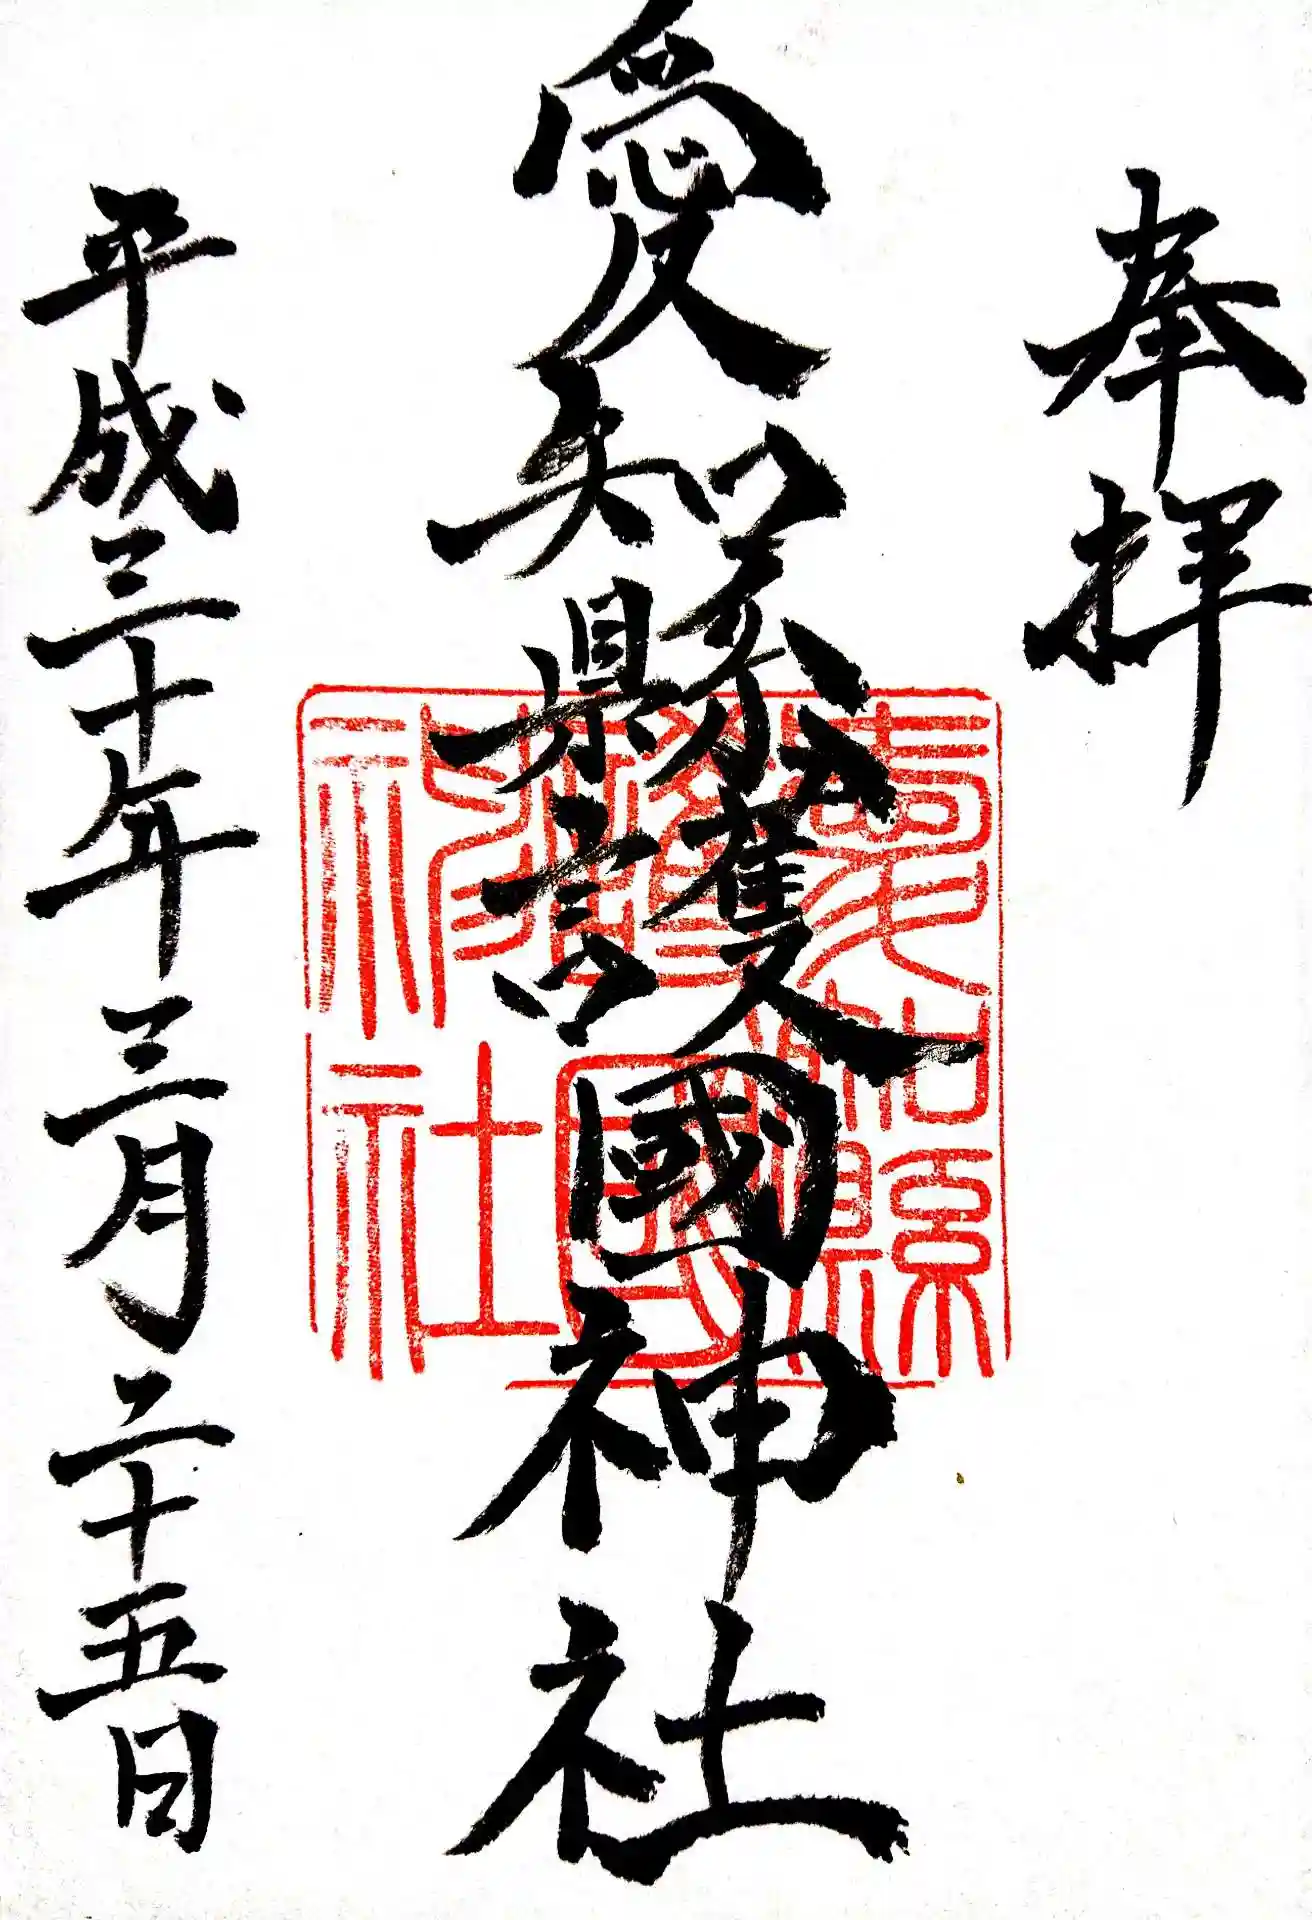 奉拝
愛知縣護國神社
平成三十年三月二十五日
愛知縣
護國
神社